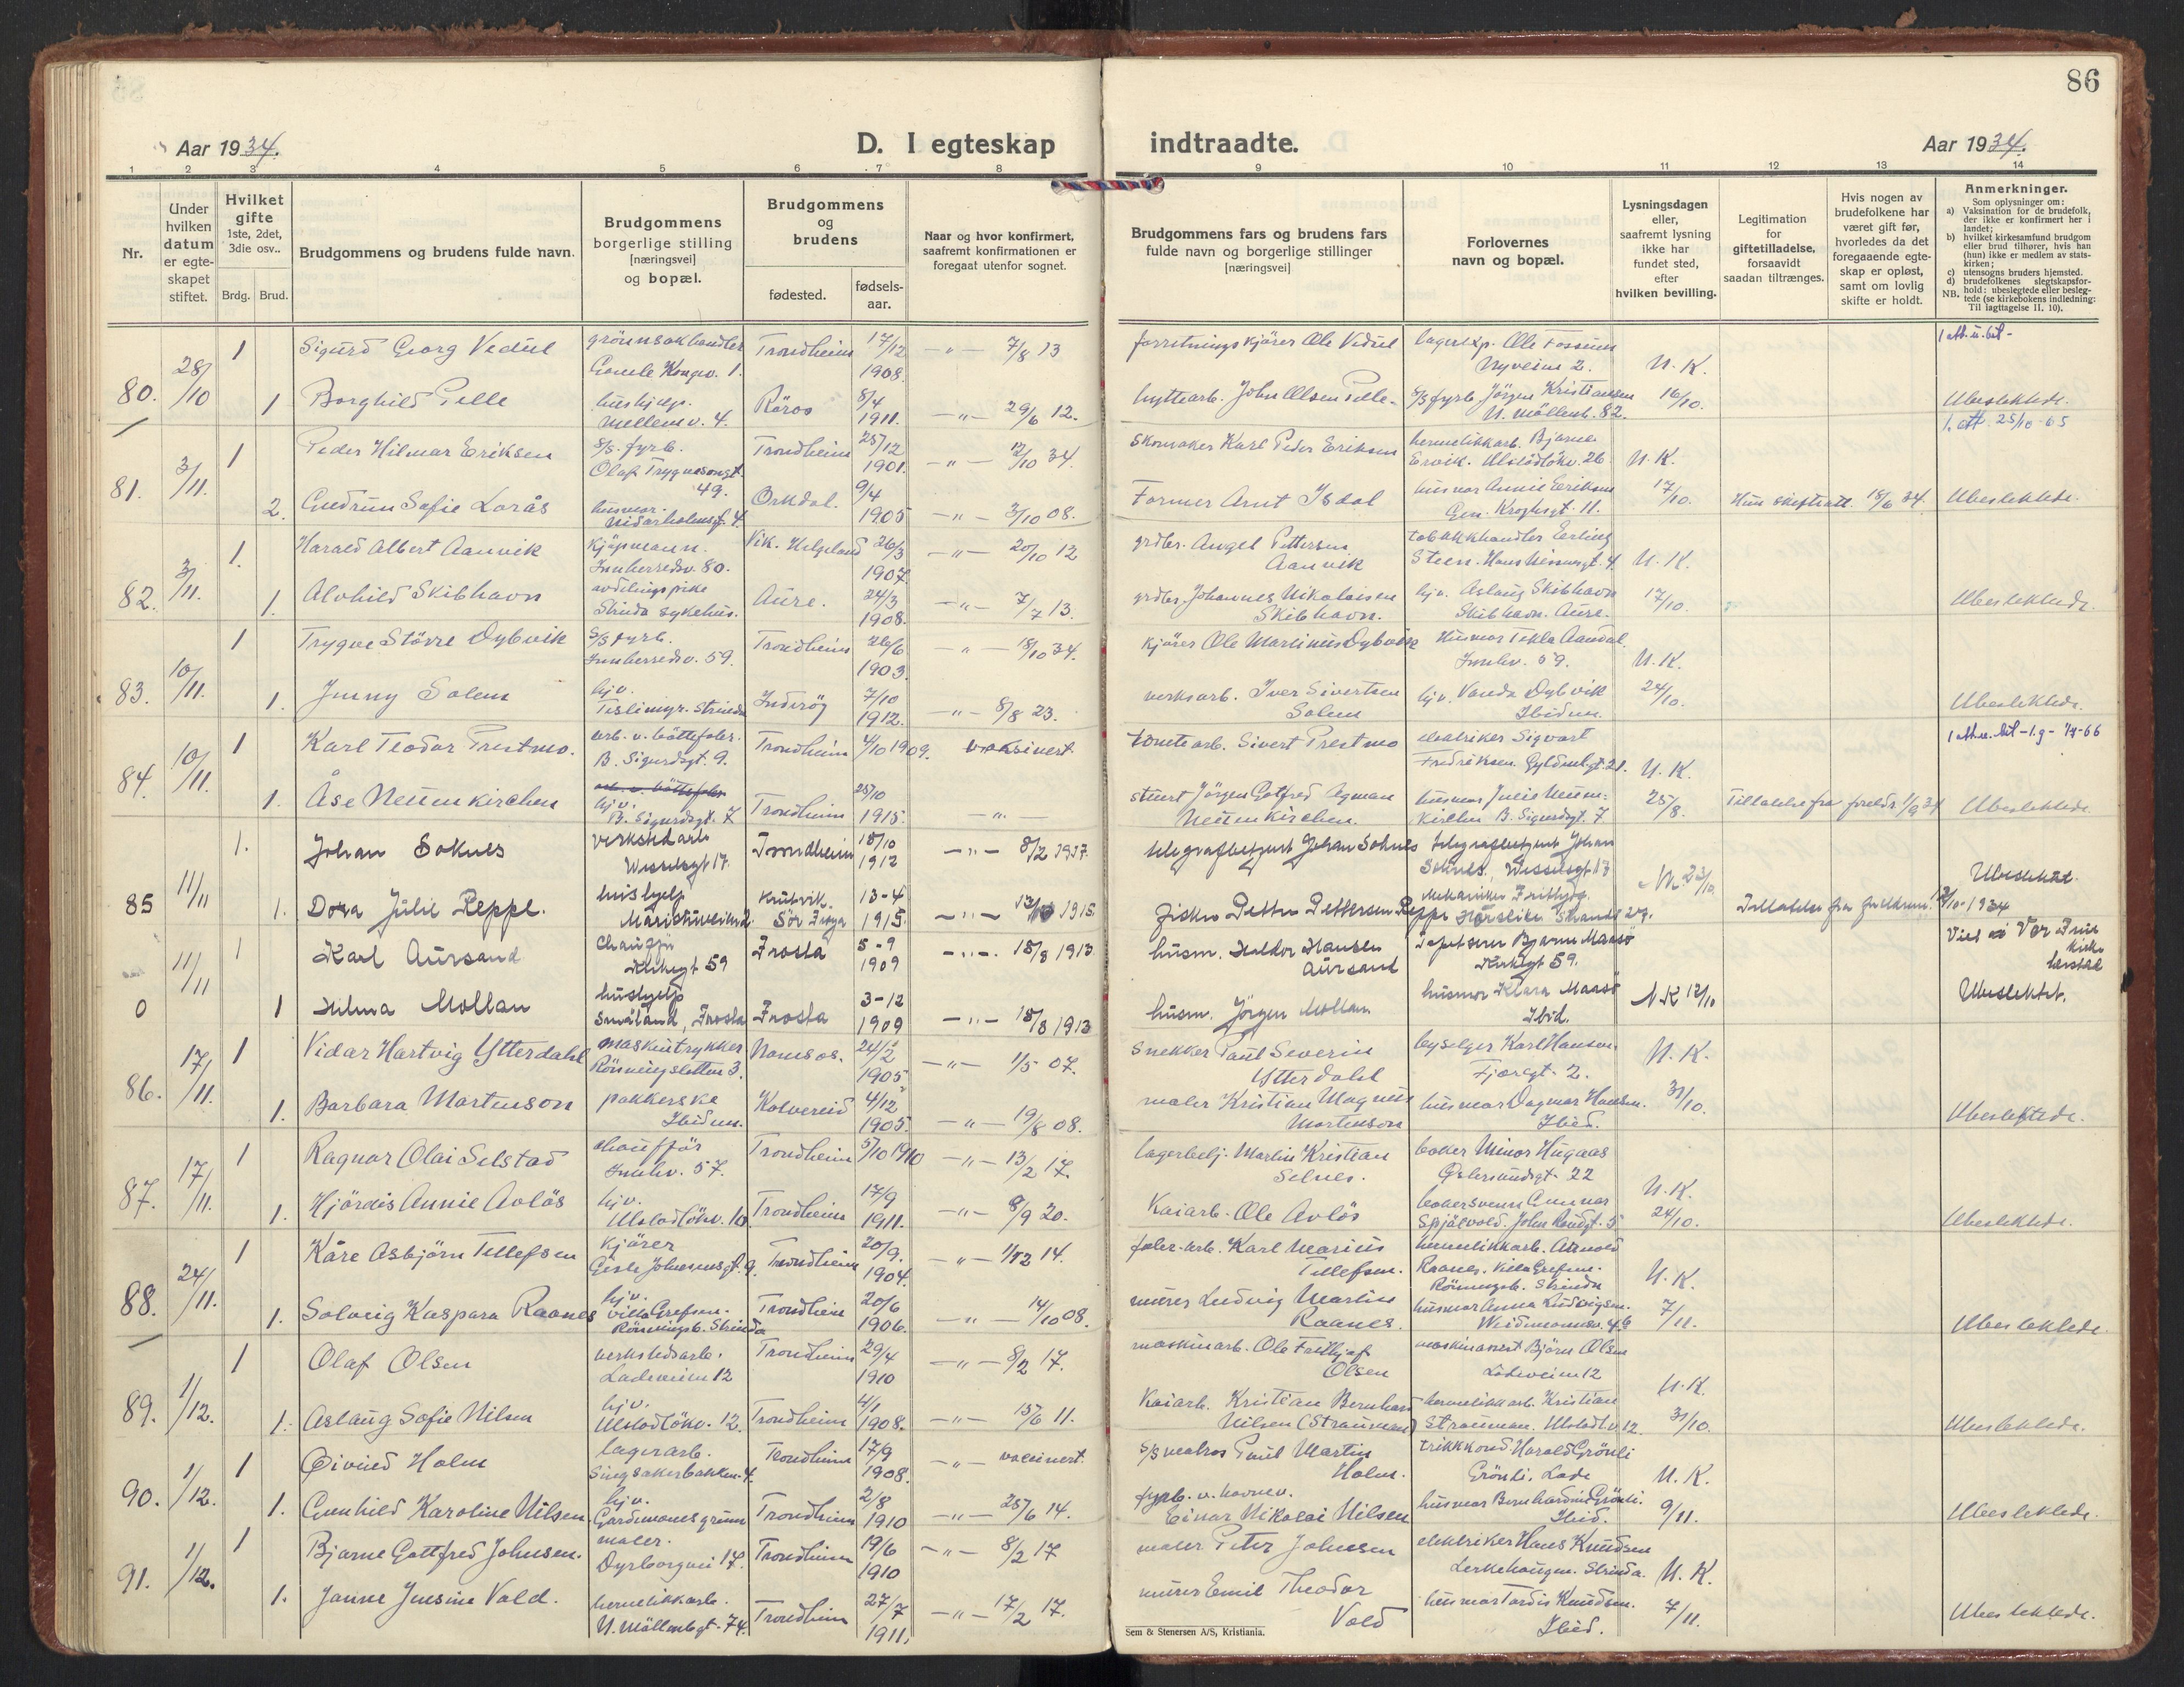 86
Aar 1934.
D. I egteskap indtraadte.
Aar 1934.
1 2 3 4 5 6 7 8 9 10 11 12 13 14
Nr.
Under hvilken datum er egteskapet stiftet.
Hvilket gifte 1ste, 2det, 3die osv..
Brdg. Brud.
Brudgommens og brudens fulde navn.
Brudgommens borgerlige stilling [næringsvei] og bopæl.
Brudgommens og brudens
fødested.
fødsels-aar.
Naar og hvor konfirmert, saafremt konfirmationen er foregaat utenfor sognet.
Brudgommens fars og brudens fars fulde navn og borgerlige stillinger [næringsvei]
Forlovernes navn og bopæl.
Lysningsdagen eller, saafremt lysning ikke har fundet sted, efter hvilken bevilling.
Legitimation for giftetilladelse, forsaavidt saadan tiltrænges.
Hvis nogen av brudefolkene har været gift før, hvorledes da det foregaaende egteskap er opløst, samt om lovlig skifte er holdt.
Anmerkninger.
Som oplysninger om:
a) Vaksination for de brudefolk, der ikke er konfirmert her i landet;
b) hvilket kirkesamfund brudgom eller brud tilhører, hvis han (hun) ikke er medlem av statskirken;
c) utensogns bruders hjemsted.
d) brudefolkenes slegtskapsforhold: ubeslegtede eller beslegtede (se kirkebokens indledning: Til Iagttagelse II, 10).
NB.
80. 28/10 1 Sigurd Georg Vedul grönnsakhandler Gamle Kongev. 1. Trondheim 17/12 1908. -"- 7/8 13 forretningskjörer Ole Vedul lagerexp. Olle Fossum Nyveien 2. N.K.
1 Borghild Pelle hushjelp. Mellemv. 4. Röros 8/4 1911. -"- 29/6 12. hyttearb. John Olsen Pelle. S/S fyrb. Jörgen Kristiansen N. Möllenb. 82. 16/10. Ubeslektede.
1. att. 25/10-65
81. 3/11. 1 Peder Hilmar Eriksen S/S. fyrb. Olaf Trygvasonsgt. 49. Trondheim 25/12 1901. -"- 12/10 34. Skomaker Karl Peder Eriksen hermetikkarb. Bjarne Ervik. Ulstadlökv. 26 N.K.
2. Gudrun Sofie Lorås husmor. Nidarholmsgt. 4. Orkdal. 9/4 1905 -"- 3/10 08. Former Arnt Isdal husmor Annie Eriksen Gen. Kroghsgt. 11. 17/10. Hun skifteatt. 18/6 34. Ubeslektede.
82. 3/11. 1. Harald Albert Aanvik Kjöpmann. Innherredsv. 80. Vik. Helgeland 26/3 1907. -"- 20/10 12 grdbr. Angel Pettersen Aanvik tobakkhandler Erling Steen. N.K.
1. Alvhild Skibhavn avdelingspike Strinda sykehus. Aure. 24/3 1908. -"- 7/7 13. grdbr. Johannes Nikolaisen Skibhavn. hjv. Aslaug Skibhavn Skibhavn. Aure. 17/10. Ubeslektede.
83. 10/11. 1 Trygve Större Dybvik S/S fyrb. Innherredsv. 59. Trondheim 26/6 1903. -"- 18/10 34. Kjörer Ole Martinus Dybvik Husmor Tekla Aandal. Innhv. 59. N.K.
1. Jenny Solem hjv. Teslimyr. Strinda Inderöy 7/10 1912. -"- 8/8 23. verksarb. Iver Sivertsen Solem hjv. Vanda Dybvik Ibidem. 24/10. Ubeslektede.
84. 10/11. 1 Karl Teodor Prestmo. arb. v. böttefabr. B. Sigurdsgt. 9. Trondheim 4/10 1909. vaksinert. tomtearb. Sivert Prestmo elektriker Sigvart Fredriksen. Gyldenl.gt. 21. N.K.
1. Åse Neuenkirchen hjv. B. Sigurdsgt. 7 Trondheim 25/10 1915. -"- stuert Jörgen Gotfred Agman Neuenkirchen. husmor Julie Neuenkirchen B. Sigurdsgt. 7 25/8. Tillatelse fra foreldr. 1/9 34 Ubeslektede.
85 11/11 1. Johan Soknes verkstedarb. Wesselsgt 17. Trondheim 18/10 1912 -"- 8/2 1927. telegrafbetjent Johan Soknes telegrafbetjent Johan Soknes, Wesselsgt 17 N.K. 23/10.
1. Dora Julie Reppe. hushjelp Sör Fröya 13-4 1915. -"- 1915. fisker Petter Pettersen Reppe Ubeslektet.
11/11 1 Karl Aursand Kirkegt 59 Frosta 5-9 1909 -"- 18/8 1913 husm. Haldor Hansen Aursand Bjarne Maasö Kirkegt 59. Viet i Vår Frue kirke
0 1 Hilma Mollan hushjelp Småland, Frosta Frosta 3-12 1909 -"- 18/8 1913 husm. Jörgen Mollan husmor Klara Maasö Ibid. N.K 12/10 Ubeslektet.
86. 17/11. 1 Vidar Hartvig Ytterdahl maskintrykker Rönningsletten 3. Namsos. 24/2 1905 -"- 1/5 07. Snekker Paul Severin Ytterdahl byselger Karl Hansen. Fjæregt. 2. N.K.
1. Barbara Martinson pakkerske Ibidem. Kolvereid 4/12 1905. -"- 19/8 08. maler Kristian Magnus Martinson husmor Dagmar Hansen. Ibid. 31/10. Ubeslektede.
87. 17/11. 1 Ragnar Olai Selstad chaufför Innhv. 57. Trondheim 5/10 1910 -"- 13/2 17. lagerbetj. Martin Kristian Selnes. baker Minor Hugaas Östersundsgt. 22 N.K.
1. Hjördis Annie Avlös hjv. Ulstadlökv. 10 Trondheim 17/9 1911. -"- 8/9 20. Kaiarb. Ole Avlös bakersvenn Gunnar Spjälvold. 24/10. Ubeslektede.
88. 24/11. 1 Kåre Asbjörn Tellefsen Kjörer Gisle Johnsonsgt. 9. Trondheim 20/9. 1904. -"- 1/12 14. faler.-arb. Karl Marius Tellefsen. hermetikkarb. Arnold Raanes. Villa Grefsen. Rönningsb. Strinda N.K.
1. Solveig Kaspara Raanes hjv. Villa Grefsen. Rönningsb. Strinda Trondheim 20/6 1906. -"- 14/10 08. murer Ludvig Martin Raanes. husmor Anna Ludvigsen. Weidemannsv. 46 7/11. Ubeslektede.
89. 1/12. 1 Olaf Olsen verkstedsarb. Ladeveien 12 Trondheim 29/4 1910 -"- 8/2 17. maskinarb. Ole Fridtjof Olsen maskinarb Björn Olsen Ladeveien 12 N.K.
1. Aslaug Sofie Nilsen hjv. Ulstadlökv. 12. Trondheim 4/1 1908. -"- 15/6 11. Kaiarb. Kristian Bernhard Nilsen (Strauman) hermetikkarb. Kristian Strauman. Ulstadl.v. 12. 31/10. Ubeslektede.
90. 1/12. 1 Öivind Holm lagerarb. Singsakerbakken. 4. Trondheim 17/9 1908. -"- vaccinert. S/S matros Emil Martin Holm. trikkkond. Harald Grönli Grönli. Lade N.K.
1. Gunhild Karoline Nilsen hjv. Gardemoensgrenn Trondheim 2/8 1910 -"- 25/6 14. fyrb. v. havnev. Einar Nikolai Nilsen husmor Bernhardine Grönli. Ibid. 9/11. Ubeslektede.
91. 1/12. 1 Bjarne Gottfred Johnsen. maler. Dyrborgvei 17. Trondheim 19/6 1910 -"- 8/2 17 maler Peter Johnsen elektriker Hans Knudsen Lerkehaugen. Strinda. N.K.
1. Janne Jensine Vold. hermetikkarb. N. Möllenbgt. 74. Trondheim 27/7 1911. -"- 17/2 17. murer Emil Theodor Vold husmor Tordis Knudsen. Ibid. 7/11. Ubeslektede.
Sem & Stenersen A/S, Kristiania.